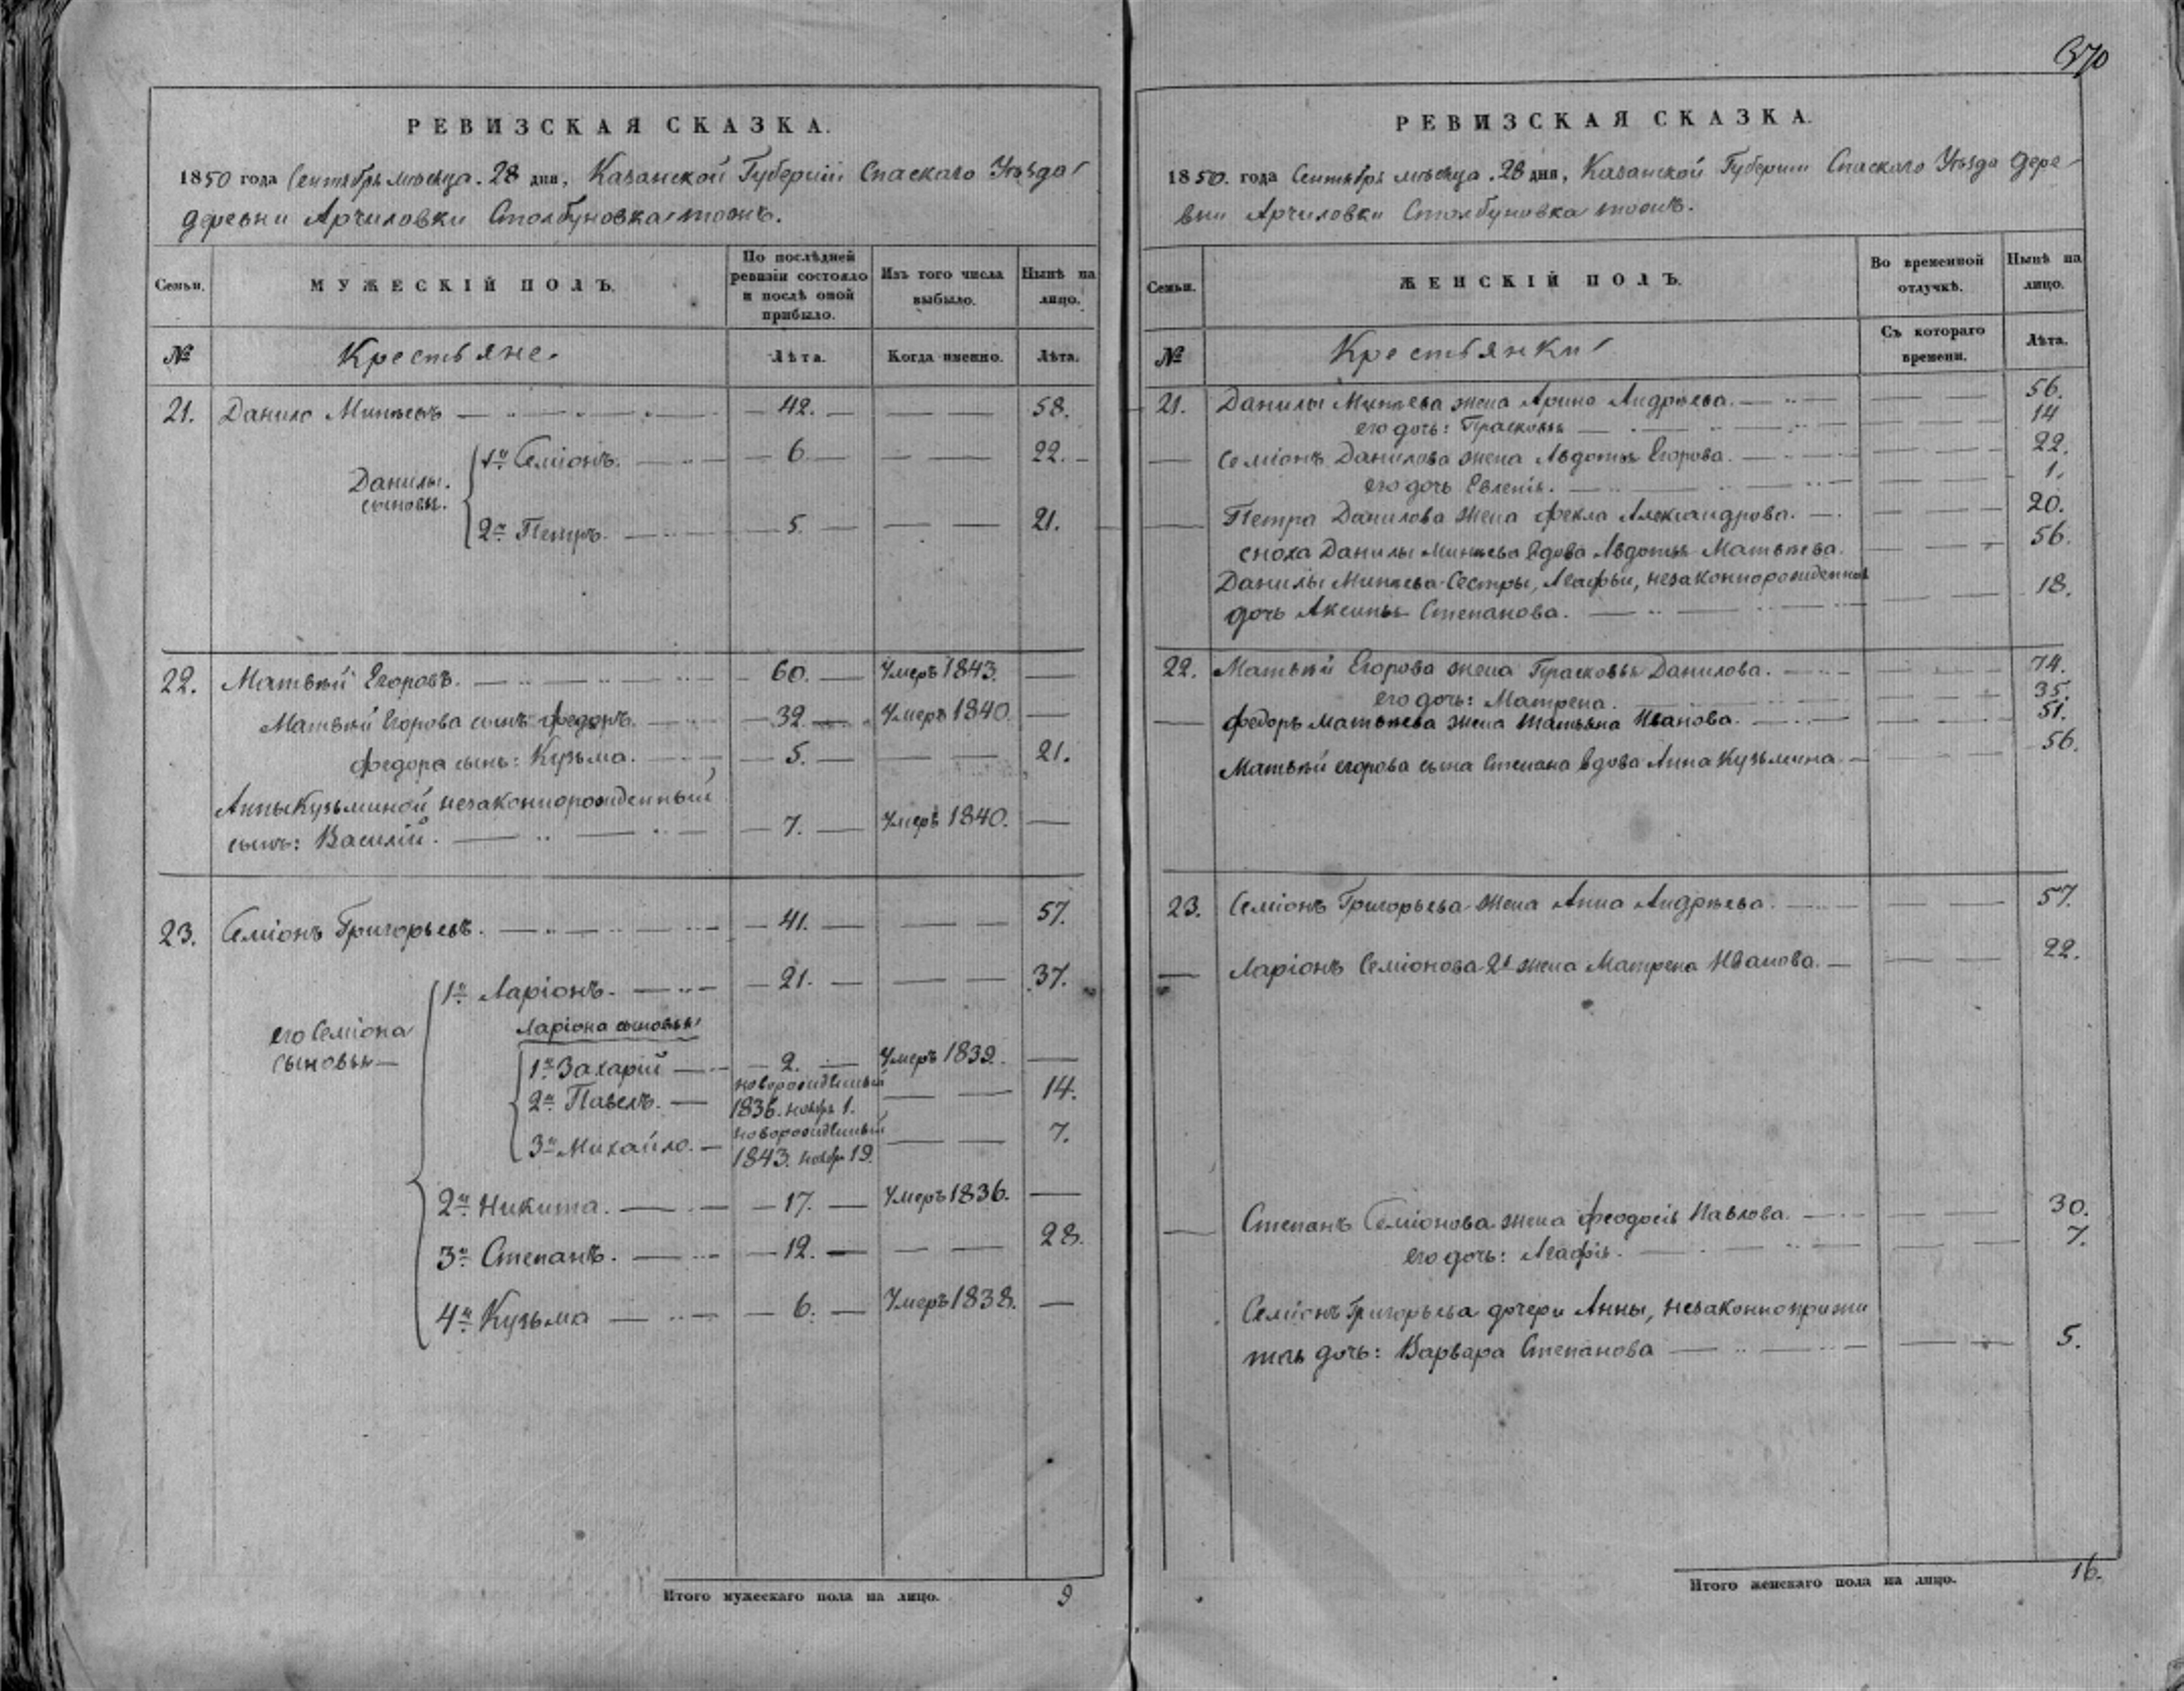 370
РЕВИЗСКАЯ СКАЗКА.
1850 года Сентября месеца. 28 дня, Казанской Губернiи Спаскаго Уѣзда
деревни Арчиловки Столбуновка тожъ.
Семьи.
МУЖЕСКІЙ ПОЛЪ.
По послѣдней
ревизіи состояло
и послѣ оной
прибыло.
Изъ того числа
выбыло.
Нынѣ на
лицо.
№
Крестьяне.
Лѣта.
Когда именно.
Лѣта.
21. Данило Минѣевъ 42. 58.
Данилы сыновья.
1й Семіонъ. 6. 22.
2й Петръ. 5. 21.
22. Матвѣй Егоровъ. 60. Умеръ 1843.
Матвѣй Егорова сынъ Федоръ. 39. Умеръ 1840.
Федора сынъ: Кузьма. 5. 21.
Анны Кузьминой незаконнорожденный
сынъ: Василій. 7. Умеръ 1840.
23. Семіонъ Григорьевъ. 41. 57.
его Семіона
сыновья
1й Ларіонъ. 21. 37.
Ларіона сыновья
1й Захарій 2. Умеръ 1839.
2й Павелъ. новорожденный
1836. ноября 1. 14.
3й Михайло. новорожденный
1843. ноября 19. 7.
2й Никита. 17. Умеръ 1836.
3й Степанъ. 12. 28.
4й Кузьма 6. Умеръ 1838.
Итого мужескаго пола на лицо. 9
РЕВИЗСКАЯ СКАЗКА.
1850. года Сентября месеца. 28 дня, Казанской Губернии Спаскаго Уѣзда дере-
вни Арчиловки Столбуновка тожъ.
Семьи.
ЖЕНСКІЙ ПОЛЪ.
Во временной
отлучкѣ.
Нынѣ на
лицо.
№
Крестьянки
Съ котораго
времени.
Лѣта.
21. Данилы Минѣева жена Арина Андрѣева. 56.
его дочь: Прасковья 14
Семіонъ Данилова жена Авдотья Егорова. 22.
его дочь Евгенія. 1.
Петра Данилова жена Фекла Александрова. 20.
сноха Данилы Минѣева вдова Авдотья Матвѣева. 56.
Данилы Минѣева Сестры, Агафьи, незаконнорожденная
дочь Аксинья Степанова. 18.
22. Матвѣй Егорова жена Прасковья Данилова. 74.
его дочь: Матрена. 35.
Федоръ Матвѣева жена Татьяна Иванова. 51.
Матвѣй Егорова сына Степана вдова Анна Кузьмина. 56.
23. Семіонъ Григорьева жена Анна Андрѣева. 57.
Ларіонъ Семіонова 2я жена Матрена Иванова. 22.
Степанъ Семіонова жена Феодосія Павлова. 30.
его дочь: Агафія. 7.
Семіонъ Григорьева дочери Анны, незаконноприжи
тая дочь: Варвара Степанова 5.
Итого женскаго пола на лицо. 16.